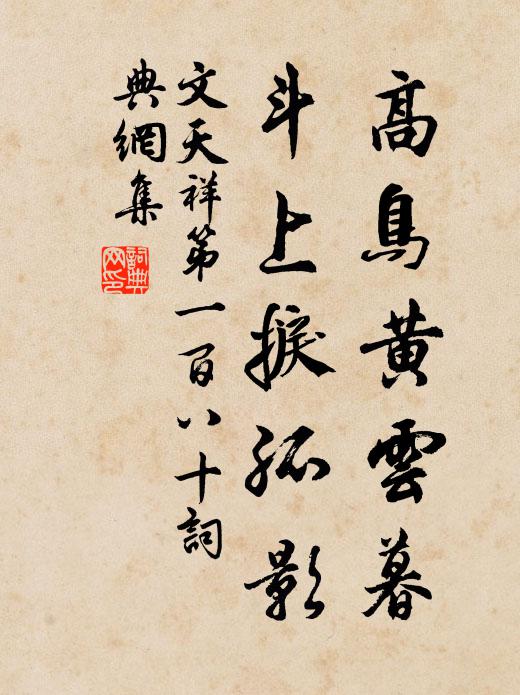 高鳥黃雲暮
斗上捩孤影
文天祥第一百八十詞
典網集
詞典網印